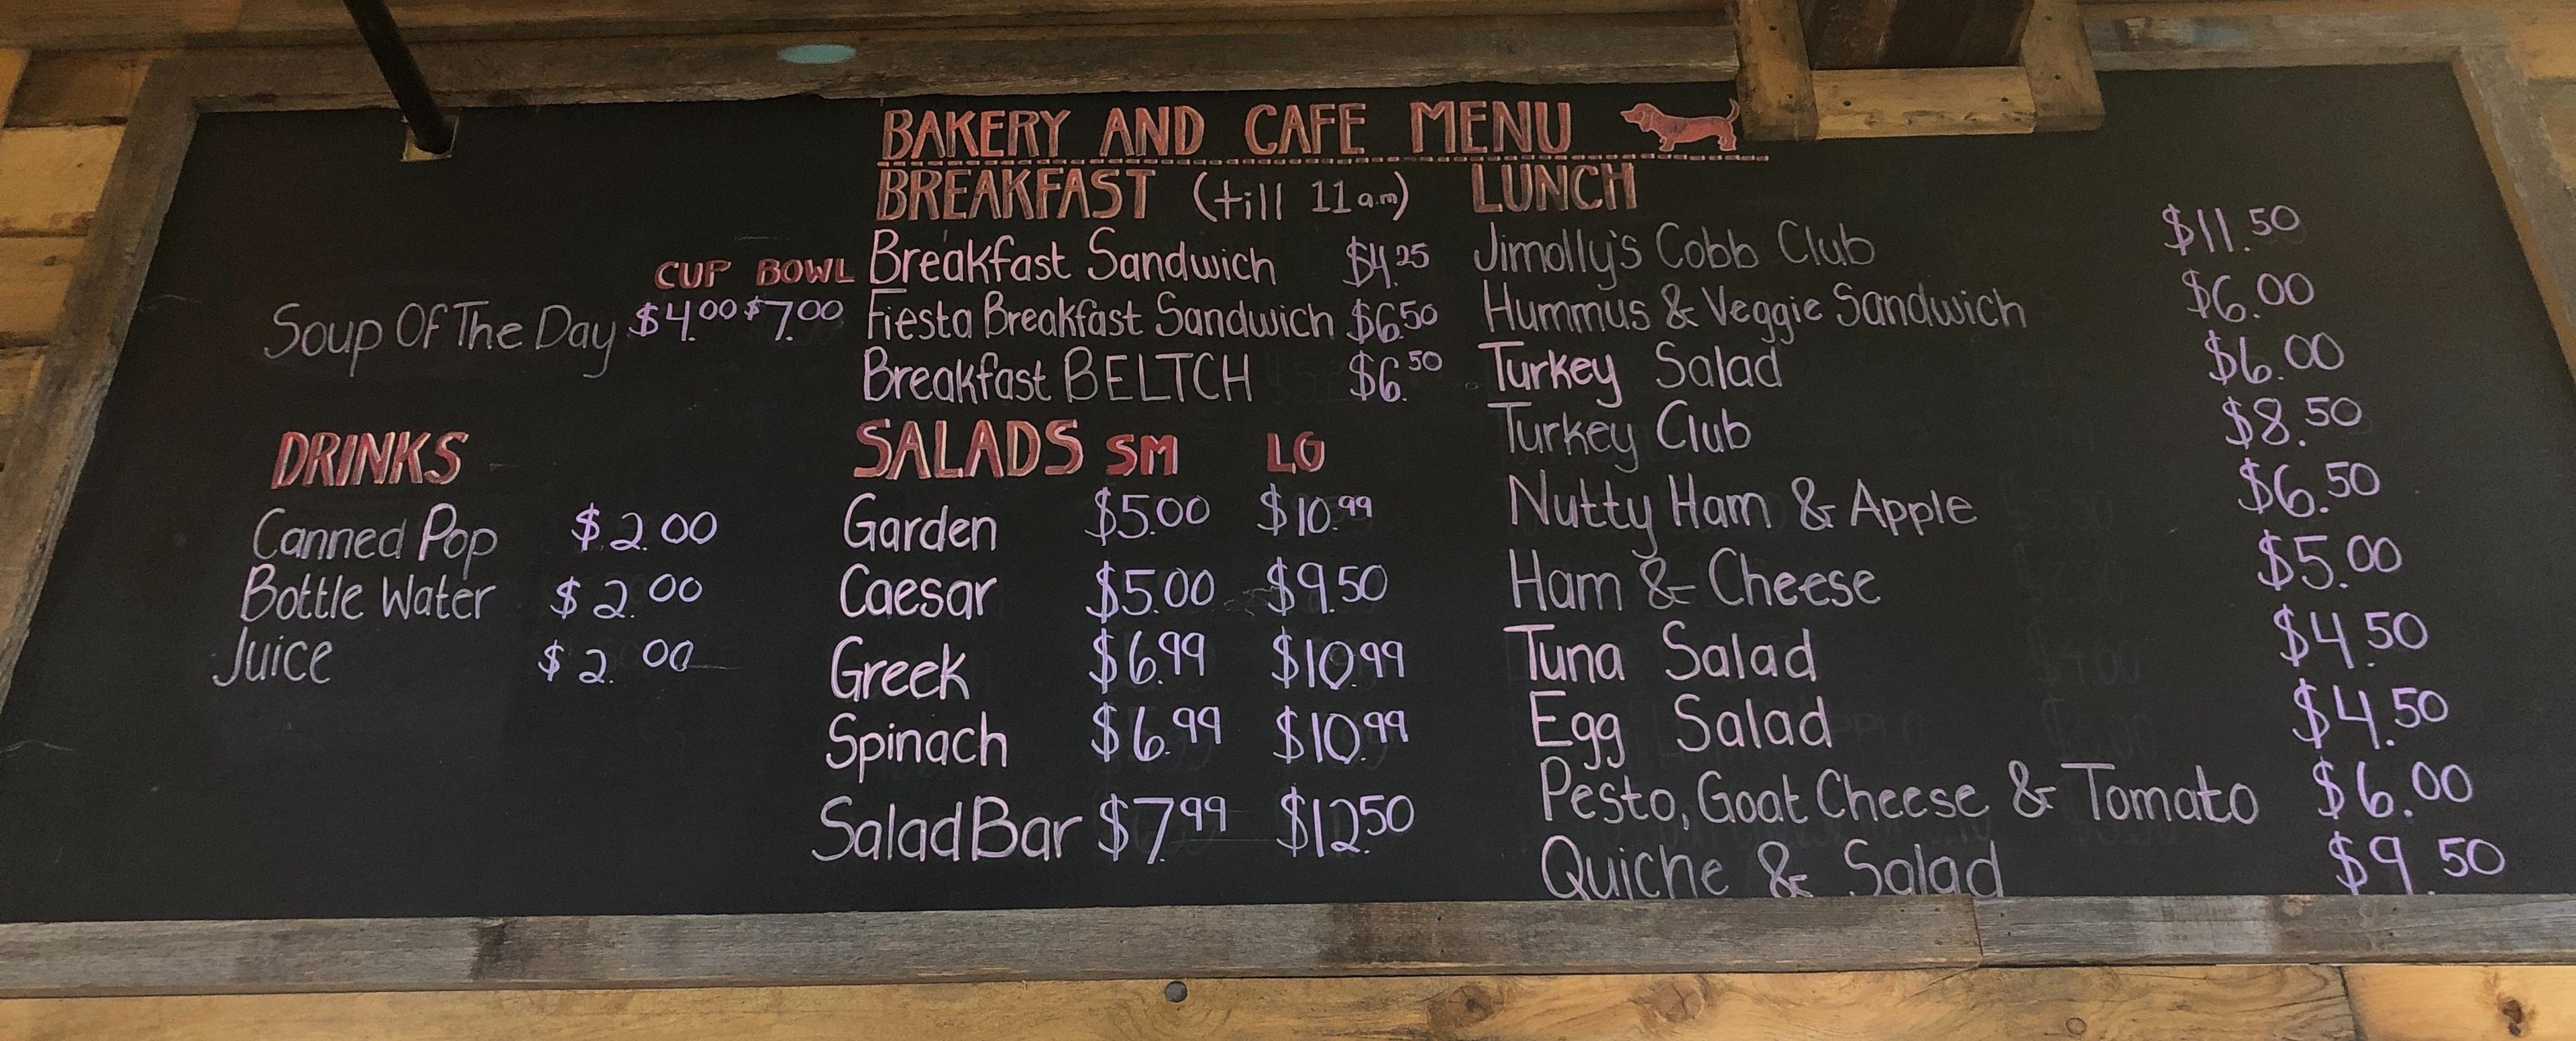 BAKERY AND CAFE MENU
CUP BOWL
Soup Of The Day $4.00 $7.00
DRINKS
Canned Pop $2.00
Bottle Water $2.00
Juice $2.00
BREAKFAST (till 11am)
Breakfast Sandwich $4.25
Fiesta Breakfast Sandwich $6.50
Breakfast BELTCH $6.50
SALADS SM LG
Garden $5.00 $10.99
Caesar $5.00 $9.50
Greek $6.99 $10.99
Spinach $6.99 $10.99
Salad Bar $7.99 $12.50
LUNCH
Jimolly's Cobb Club $11.50
Hummus & Veggie Sandwich $6.00
Turkey Salad $6.00
Turkey Club $8.50
Nutty Ham & Apple $6.50
Ham & Cheese $5.00
Tuna Salad $4.50
Egg Salad $4.50
Pesto, Goat Cheese & Tomato $6.00
Quiche & Salad $9.50